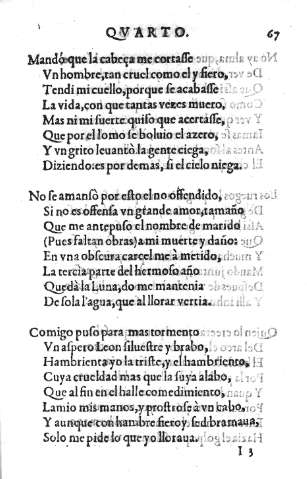 QVARTO. 67
Mandó que la cabeça me cortasse
Vn hombre, tan cruel como el y fiero,
Tendi mi cuello, porque se acabasse
La vida, con que tantas vezes muero,
Mas ni mi fuerte quiso que acertasse,
Que por el lomo se boluio el azero,
Y vn grito leuantò la gente ciega,
Diziendo: es por demas, si el cielo niega.
No se amansò por esto el no offendido,
Si no es offensa vn grande amor, tamaño
Que me antepuso el nombre de marido
(Pues faltan obras) a mi muerte y daño:
En vna obscura carcel me à metido,
La tercia parte del hermoso año
Quedà la Luna, do me mantenia
De sola l'agua, que al llorar vertia.
Comigo puso para mas tormento
Vn aspero Leon siluestre y brabo,
Hambrienta yo la triste, y el hambriento,
Cuya crueldad mas que la suya alabo,
Que al fin en el halle comedimiento,
Lamio mis manos, y prostrose à vn cabo,
Y aunque con hambre fiero y sed bramaua,
Solo me pide lo que yo lloraua.
I 3